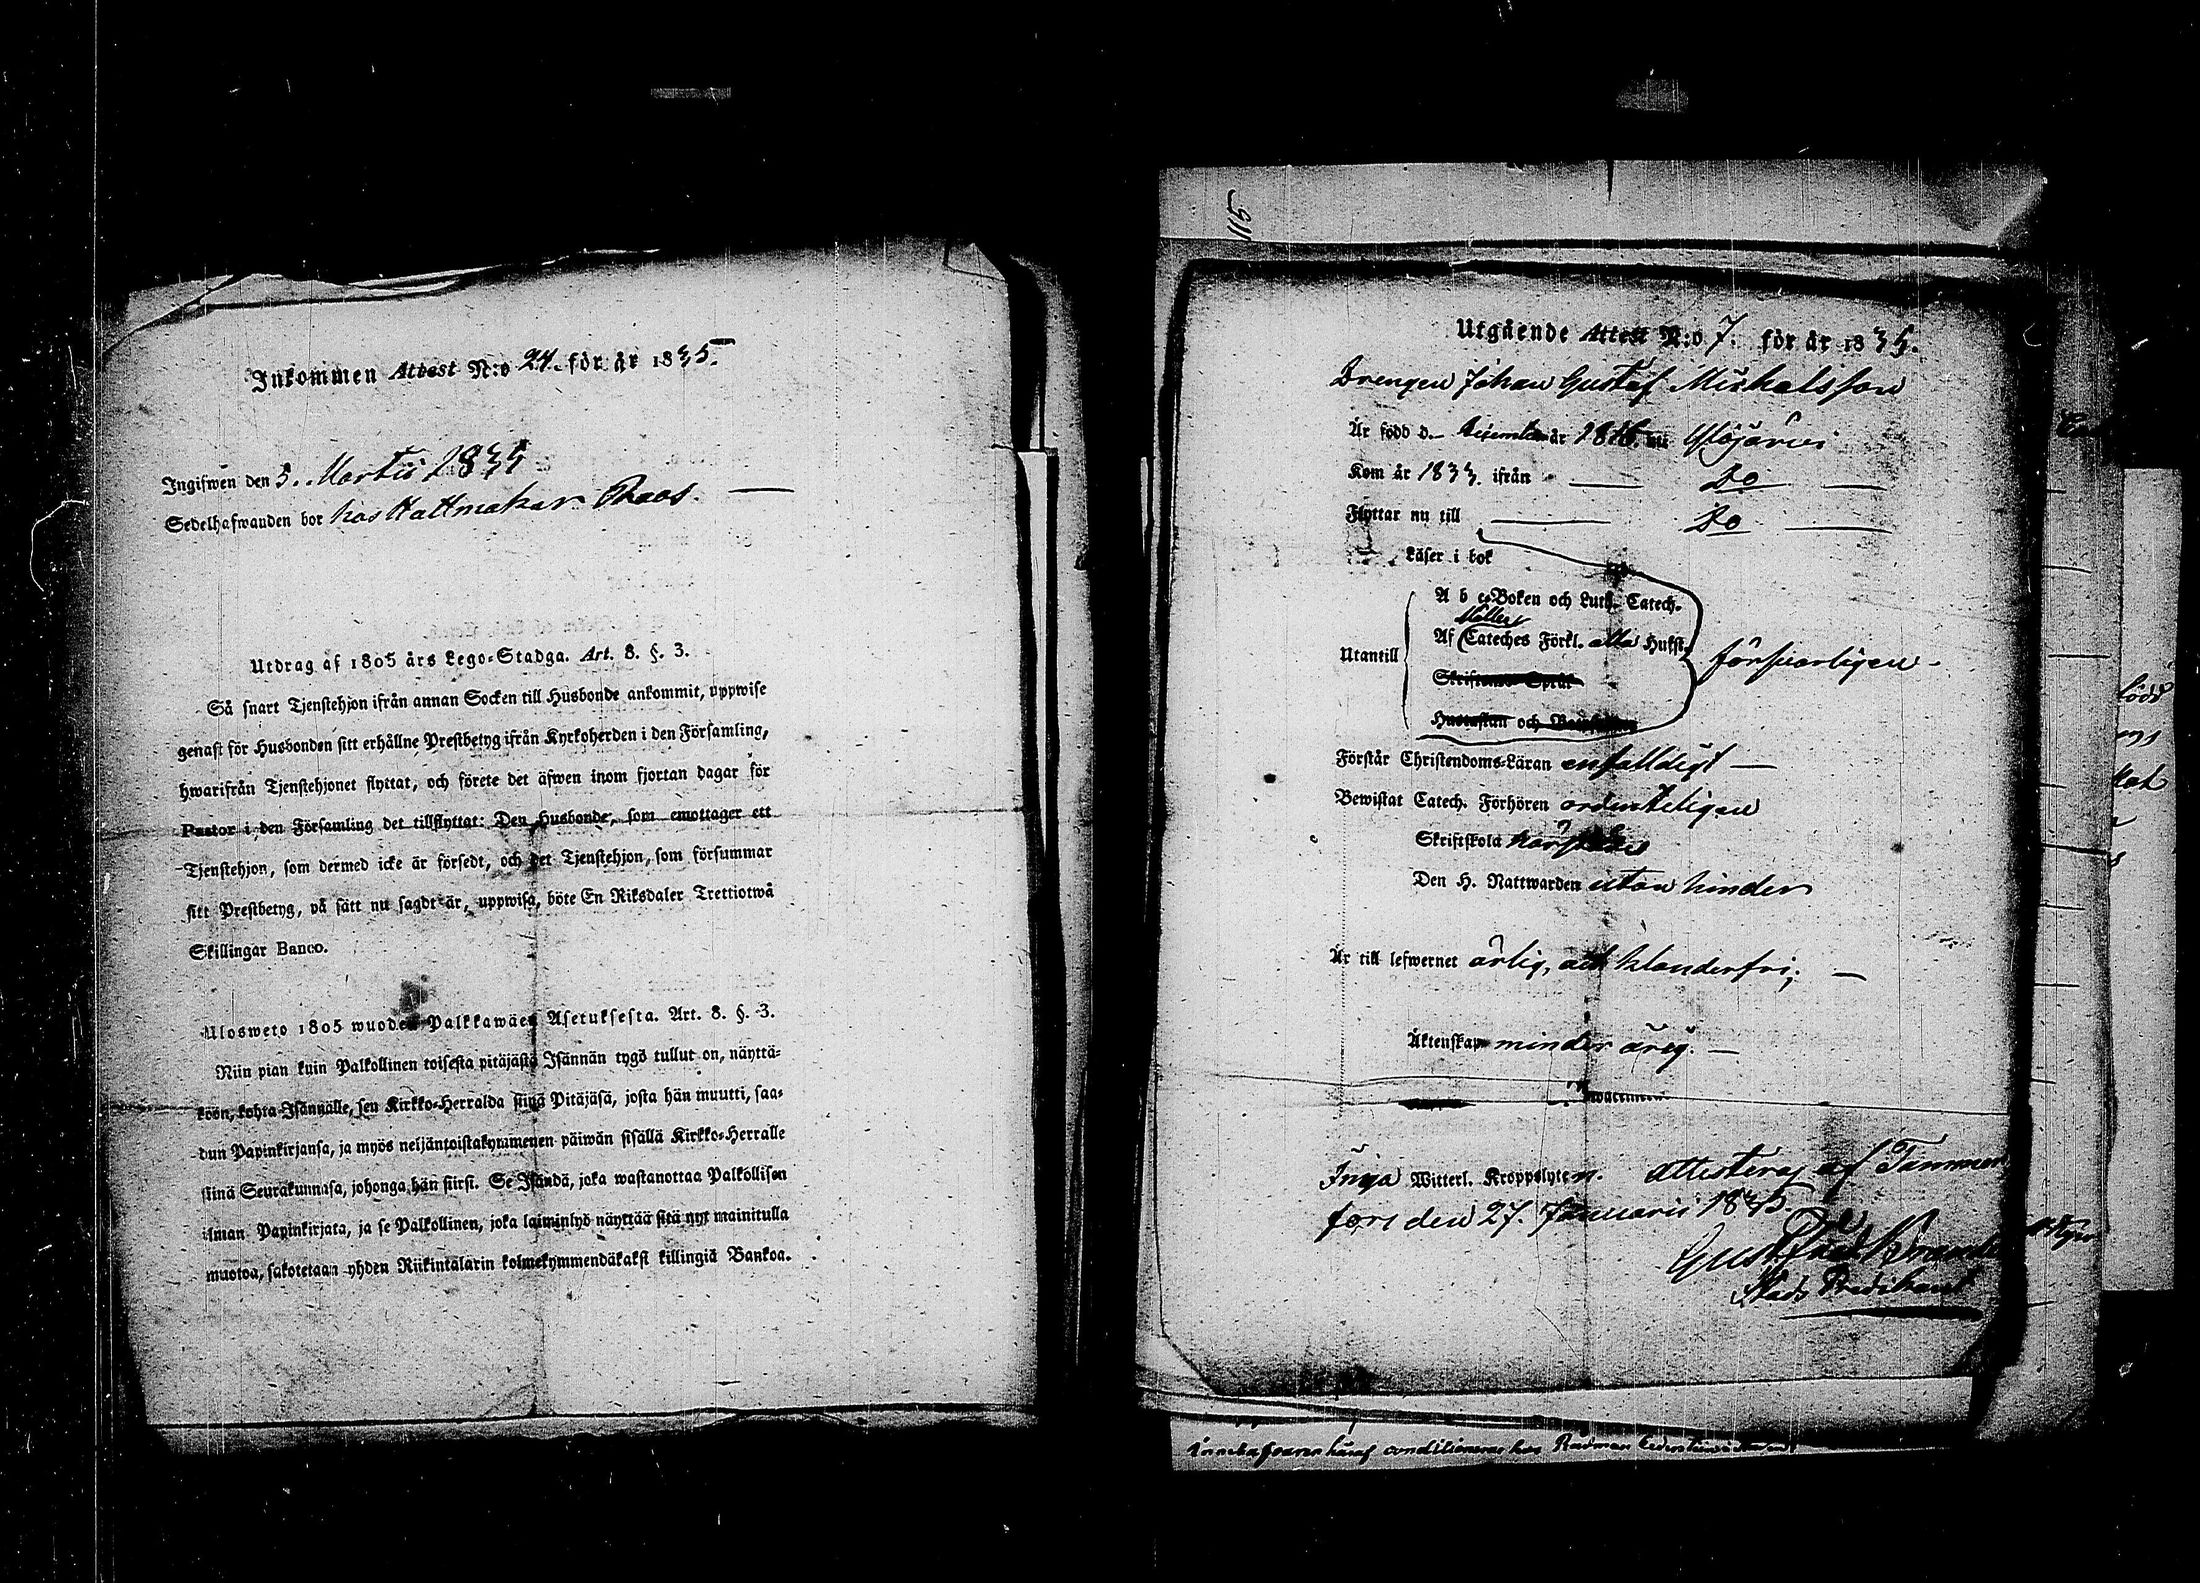 Inkommen Attest N:o 24. för år 1835.
Ingifwen den 5. Martii 1835
Sedelhafwanden bor hos Hattmakar Roos.
Utdrag af 1805 års Lego-Stadga. Art. 8. §. 3.
Så snart Tjenstehjon ifrån annan Socken till Husbonde ankommit, uppwise
genast för Husbonden sitt erhållne Prestbetyg ifrån Kyrkoherden i den Församling,
hwarifrån Tjenstehjonet flyttat, och förete det äfwen inom fjortan dagar för
Pastor i den Församling det tillflyttat: Den Husbonde, som emottager ett
Tjenstehjon, som dermed icke är försedt, och det Tjenstehjon, som försummar
sitt Prestbetyg, på sätt nu sagdt är, uppwisa, böte En Riksdaler Trettiotwå
Skillingar Banco.
Ulosweto 1805 wuoden Palkkawäen Asetuksesta. Art. 8. §. 3.
Niin pian kuin Palkollinen toisesta pitäjästä Isännän tygö tullut on, näyttä-
köön, kohta Isännälle, sen Kirkko-Herralda siinä Pitäjäsä, josta hän muutti, saa-
dun Papinkirjansa, ja myös neljäntoistakymmenen päiwän sisällä Kirkko-Herralle
siinä Seurakunnasa, johonga hän siirsi. Se Isändä, joka wastanottaa Palkollisen
ilman Papinkirjata, ja se Palkollinen, joka laiminlyö näyttää sitä nyt mainitulla
muotoa, sakotetaan yhden Riikintalarin kolmekymmendäkaksi killingiä Bankoa.
115
Utgående Attest N:o 7. för år 1835.
Drengen Johan Gustaf Michalsson
Är född d. December år 1816. uti Ylöjärvi
Kom år 1833. ifrån Do
Flyttar nu till Do
Läser i bok
A b c-Boken och Luth. Catech.
Möllers
Af Cateches Förkl. alla Hufst.
Utantill försvarligen
Skriftenes Språk
Hustaflan och
Förstår Christendoms-Läran enfalldigt
Bewistat Catech. Förhören ordenteligen
Skriftskola härstädes
Den H. Nattwarden utan hinder
Är till lefwernet ärlig, och klanderfri;
Äktenskap minder årig.
Inga Witterl. Kroppslyten. Attesteras af Tammer
fors den 27. Januarii 1835.
Gust. Fred.
Stads Predikant
conditionerar hos Rådman